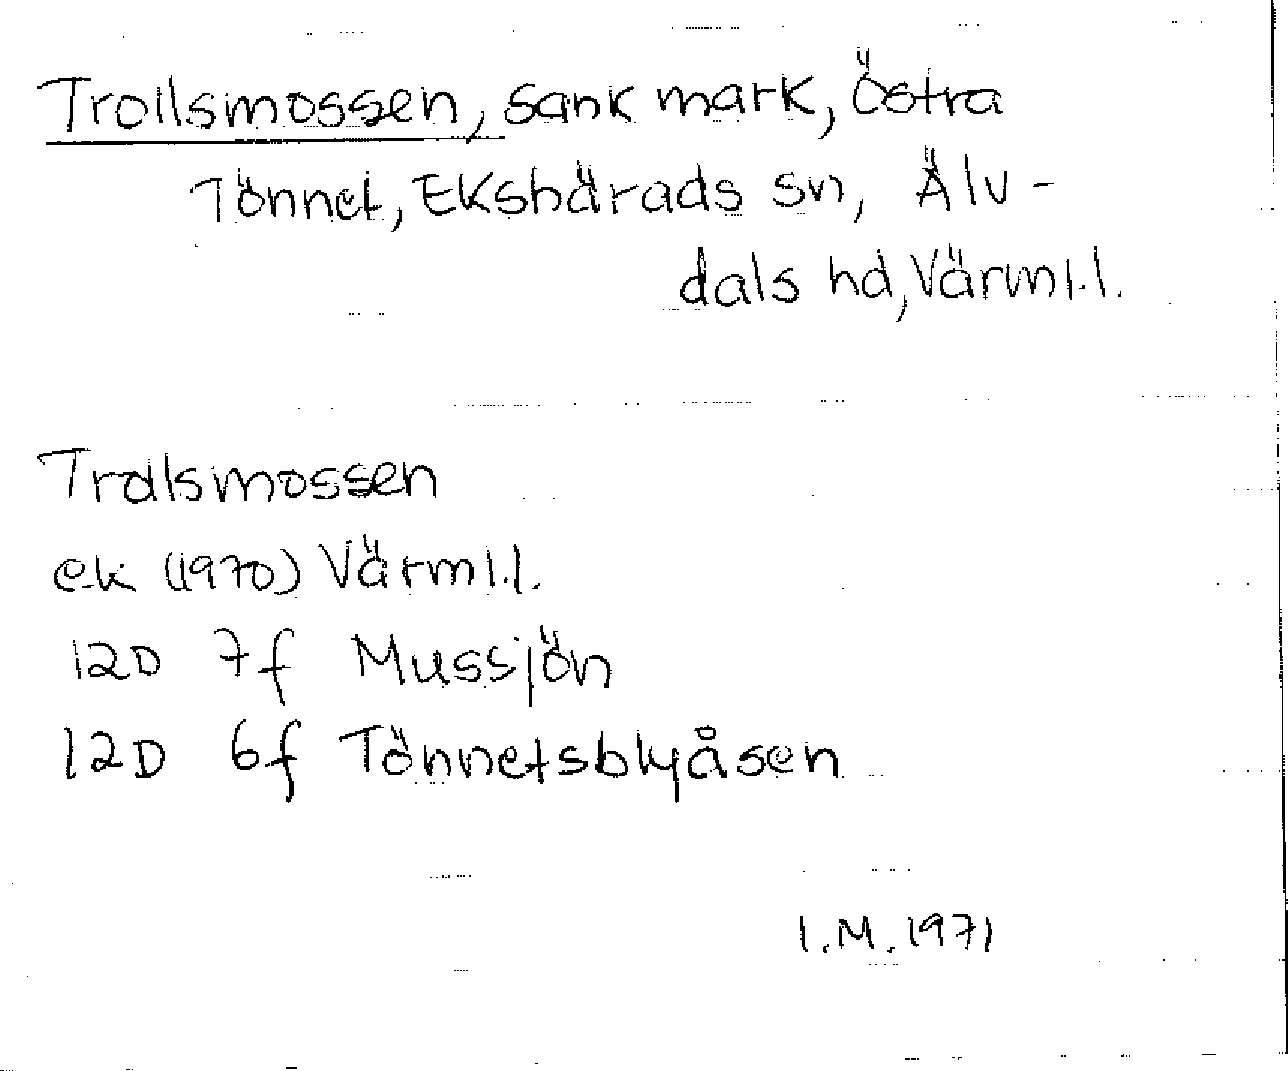 Trollsmossen, sank mark, Östra
Tönnet, Ekshärads sn, Älv-
dals hd, Värml.l.
Trollsmossen
ek (1970) Värml.l.
12D 7f Mussjön
12D 6f Tönnetsblyåsen
I.M. 1971